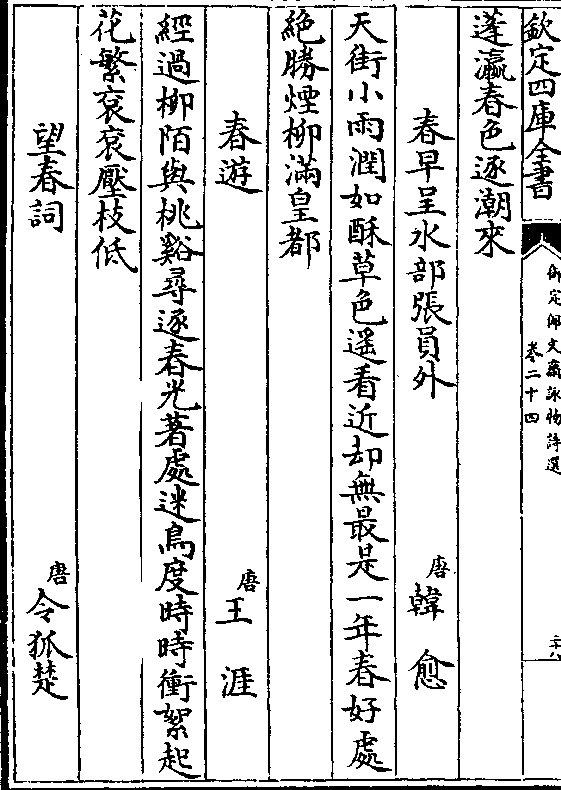 欽定四庫全書
御定佩文齋詠物詩選
卷二十四
二十八
蓬瀛春色逐潮來
春早呈水部張員外 唐韓愈
天街小雨潤如酥草色遥看近却無最是一年春好處
絶勝煙柳滿皇都
春遊 唐王涯
經過柳陌與桃谿尋逐春光著處迷鳥度時時衝絮起
花繁衮衮壓枝低
望春詞 唐令狐楚